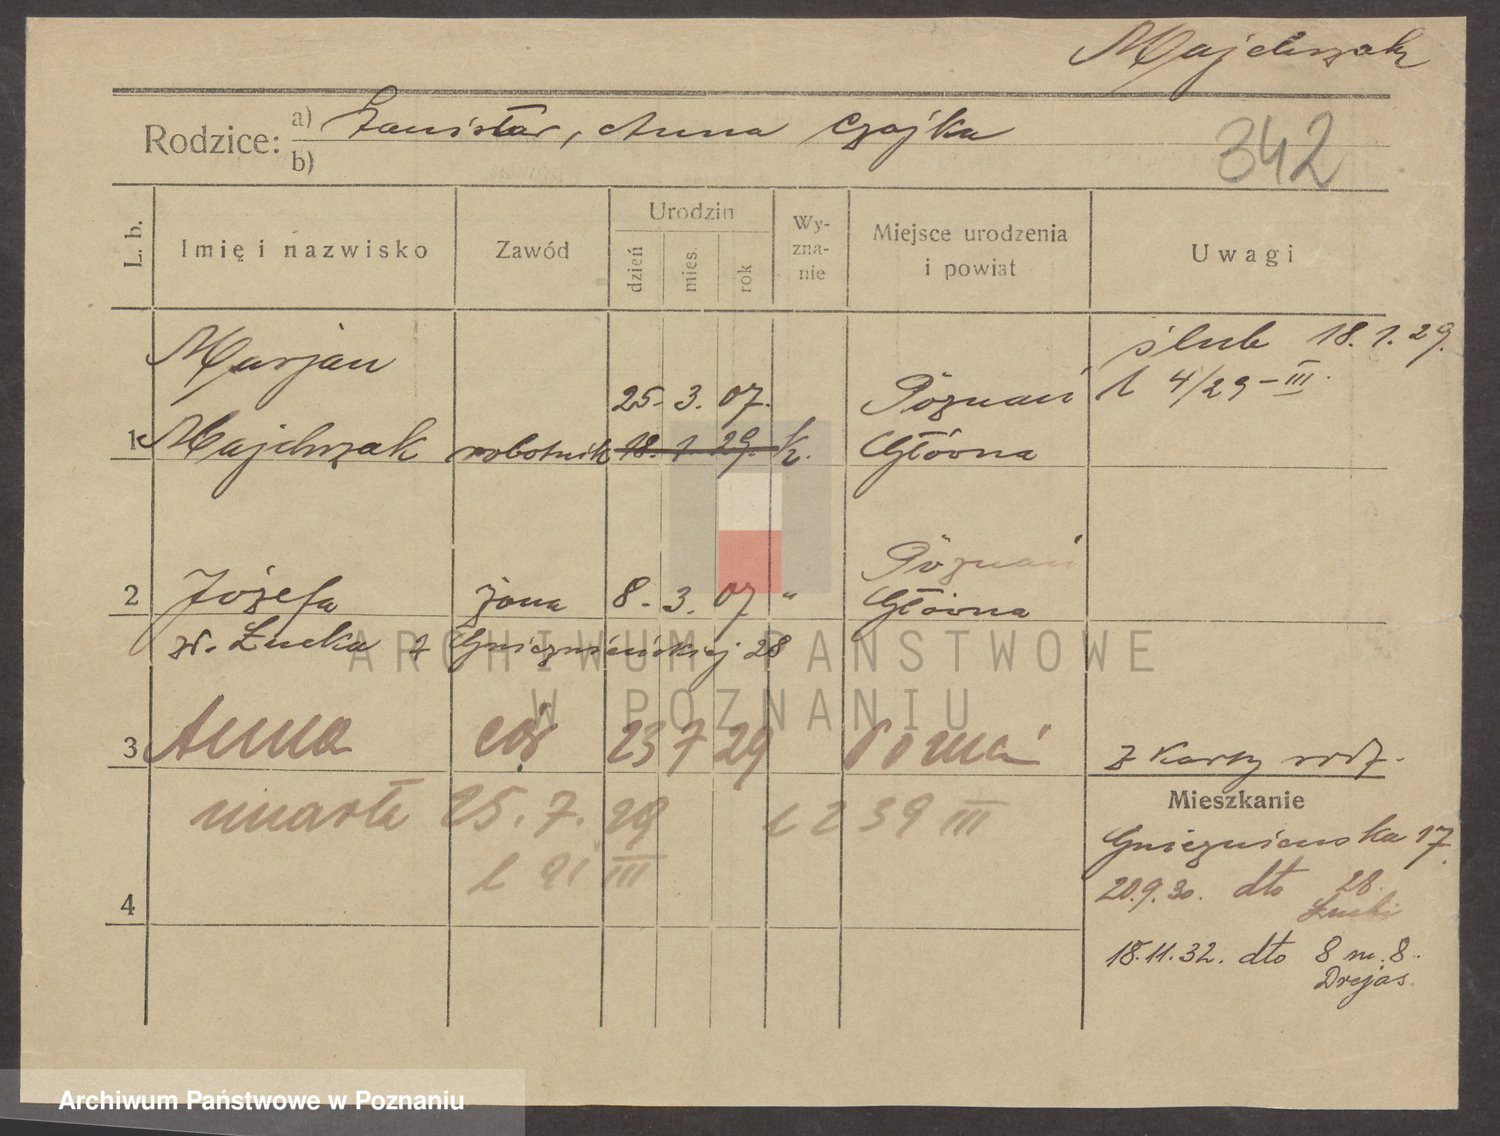 Majchrzak
Rodzice: a) Stanisław, Anna Czajka
b)
342
L. b.
Imię i nazwisko
Zawód
Urodzin
dzień
mies.
rok
Wy-
zna-
nie
Miejsce urodzenia
i powiat
Uwagi
Marjan
25. 3. 07.
Poznań
ślub 18.1.29.
L 4/29-III.
1 Majchrzak robotnik 18. 1. 29. k. Główna
Poznań
2 Józefa żona 8. 3. 07 " Główna
zd. Łucka z Gnieźnieńskiej 28
3 Anna cór 23 7 29 Poznań
z karty rodz.
umarła 25. 7. 29 L 239 III
L 91 III
4
Mieszkanie
Gnieźnieńska 17.
20.9.30. dto 28.
Łucki
18.11.32. dto 8 m. 8.
Drejas.
ARCHIWUM PAŃSTWOWE
W POZNANIU
Archiwum Państwowe w Poznaniu